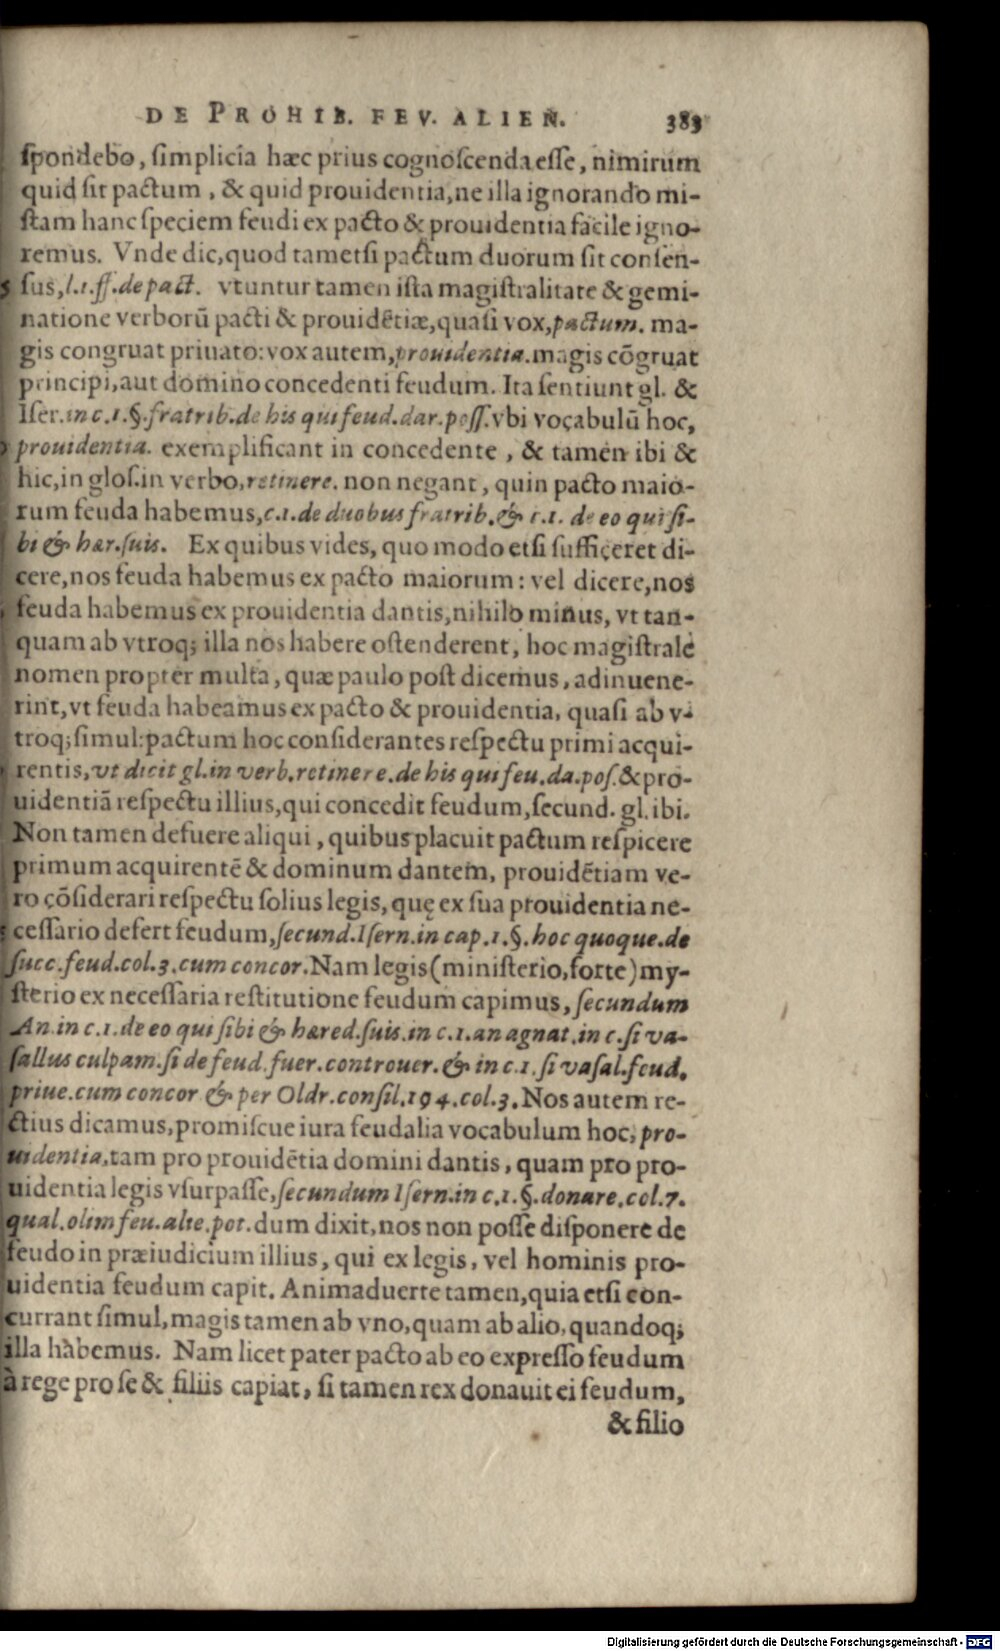 DE PROHIB. FEV. ALIEN. 383
spondebo, simplicia hæc prius cognoscenda esse, nimirum
quid sit pactum, & quid prouidentia, ne illa ignorando mi-
stam hanc speciem feudi ex pacto & prouidentia facile igno-
remus. Vnde dic, quod tametsi pactum duorum sit consen-
5 sus, l.1.ff.de pact. vtuntur tamen ista magistralitate & gemi-
natione verborū pacti & prouidētiæ, quasi vox, pactum. ma-
gis congruat priuato: vox autem, prouidentia. magis cōgruat
principi, aut domino concedenti feudum. Ita sentiunt gl. &
Iser. in c.1.§.fratrib.de his qui feud.dar.poss. vbi vocabulū hoc,
prouidentia. exemplificant in concedente, & tamen ibi &
hic, in glos. in verbo, retinere. non negant, quin pacto maio-
rum feuda habemus, c.1.de duobus fratrib. & c.1. de eo qui si-
bi & hær.suis. Ex quibus vides, quo modo etsi sufficeret di-
cere, nos feuda habemus ex pacto maiorum: vel dicere, nos
feuda habemus ex prouidentia dantis, nihilo minus, vt tan-
quam ab vtroq; illa nos habere ostenderent, hoc magistrale
nomen propter multa, quæ paulo post dicemus, adinuene-
rint, vt feuda habeamus ex pacto & prouidentia, quasi ab v-
troq; simul: pactum hoc considerantes respectu primi acqui-
rentis, vt dicit gl.in verb.retinere.de his qui feu.da.pos. & pro-
uidentiā respectu illius, qui concedit feudum, secund. gl. ibi.
Non tamen defuere aliqui, quibus placuit pactum respicere
primum acquirentē & dominum dantem, prouidētiam ve-
ro cōsiderari respectu solius legis, quę ex sua prouidentia ne-
cessario defert feudum, secund.Isern.in cap.1.§.hoc quoque.de
succ.feud.col.3.cum concor. Nam legis (ministerio, forte) my-
sterio ex necessaria restitutione feudum capimus, secundum
An.in c.1.de eo qui sibi & hæred.suis.in c.1.an agnat.in c.si va-
sallus culpam.si de feud.fuer.controuer. & in c.1.si vasal.feud.
priue.cum concor & per Oldr.consil.194.col.3. Nos autem re-
ctius dicamus, promiscue iura feudalia vocabulum hoc, pro-
uidentia, tam pro prouidētia domini dantis, quam pro pro-
uidentia legis vsurpasse, secundum Isern.in c.1.§.donare.col.7.
qual.olim feu.alie.pot. dum dixit, nos non posse disponere de
feudo in præiudicium illius, qui ex legis, vel hominis pro-
uidentia feudum capit. Animaduerte tamen, quia etsi con-
currant simul, magis tamen ab vno, quam ab alio, quandoq;
illa habemus. Nam licet pater pacto ab eo expresso feudum
à rege pro se & filiis capiat, si tamen rex donauit ei feudum,
& filio
Digitalisierung gefördert durch die Deutsche Forschungsgemeinschaft - DFG